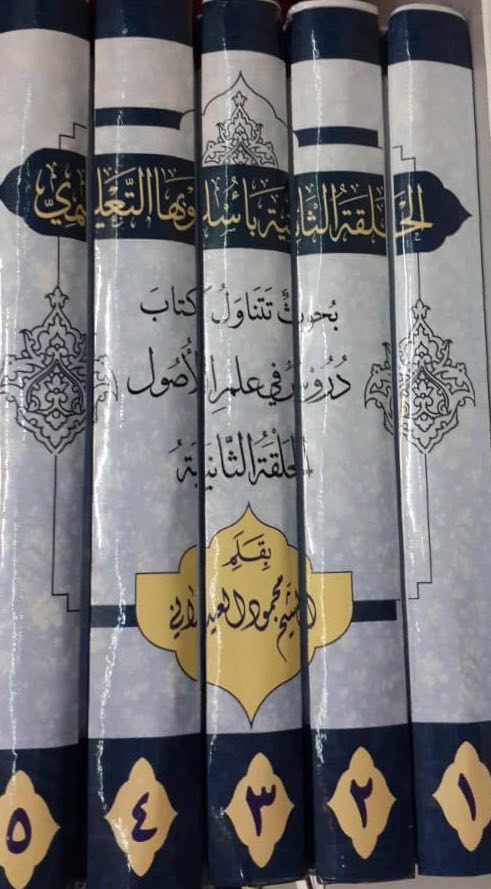 الحَلقَةُ الثانيَة بِأُسلُوبِهَا التَّعليمِيّ
بُحوثٌ تَتَناوَلُ كتابَ
دُرُوسٌ في علمِ الأُصول
الحَلقَةُ الثَّانيَةُ
بِقَلَمِ
الشيخ محمود العيداني
١ ٢ ٣ ٤ ٥